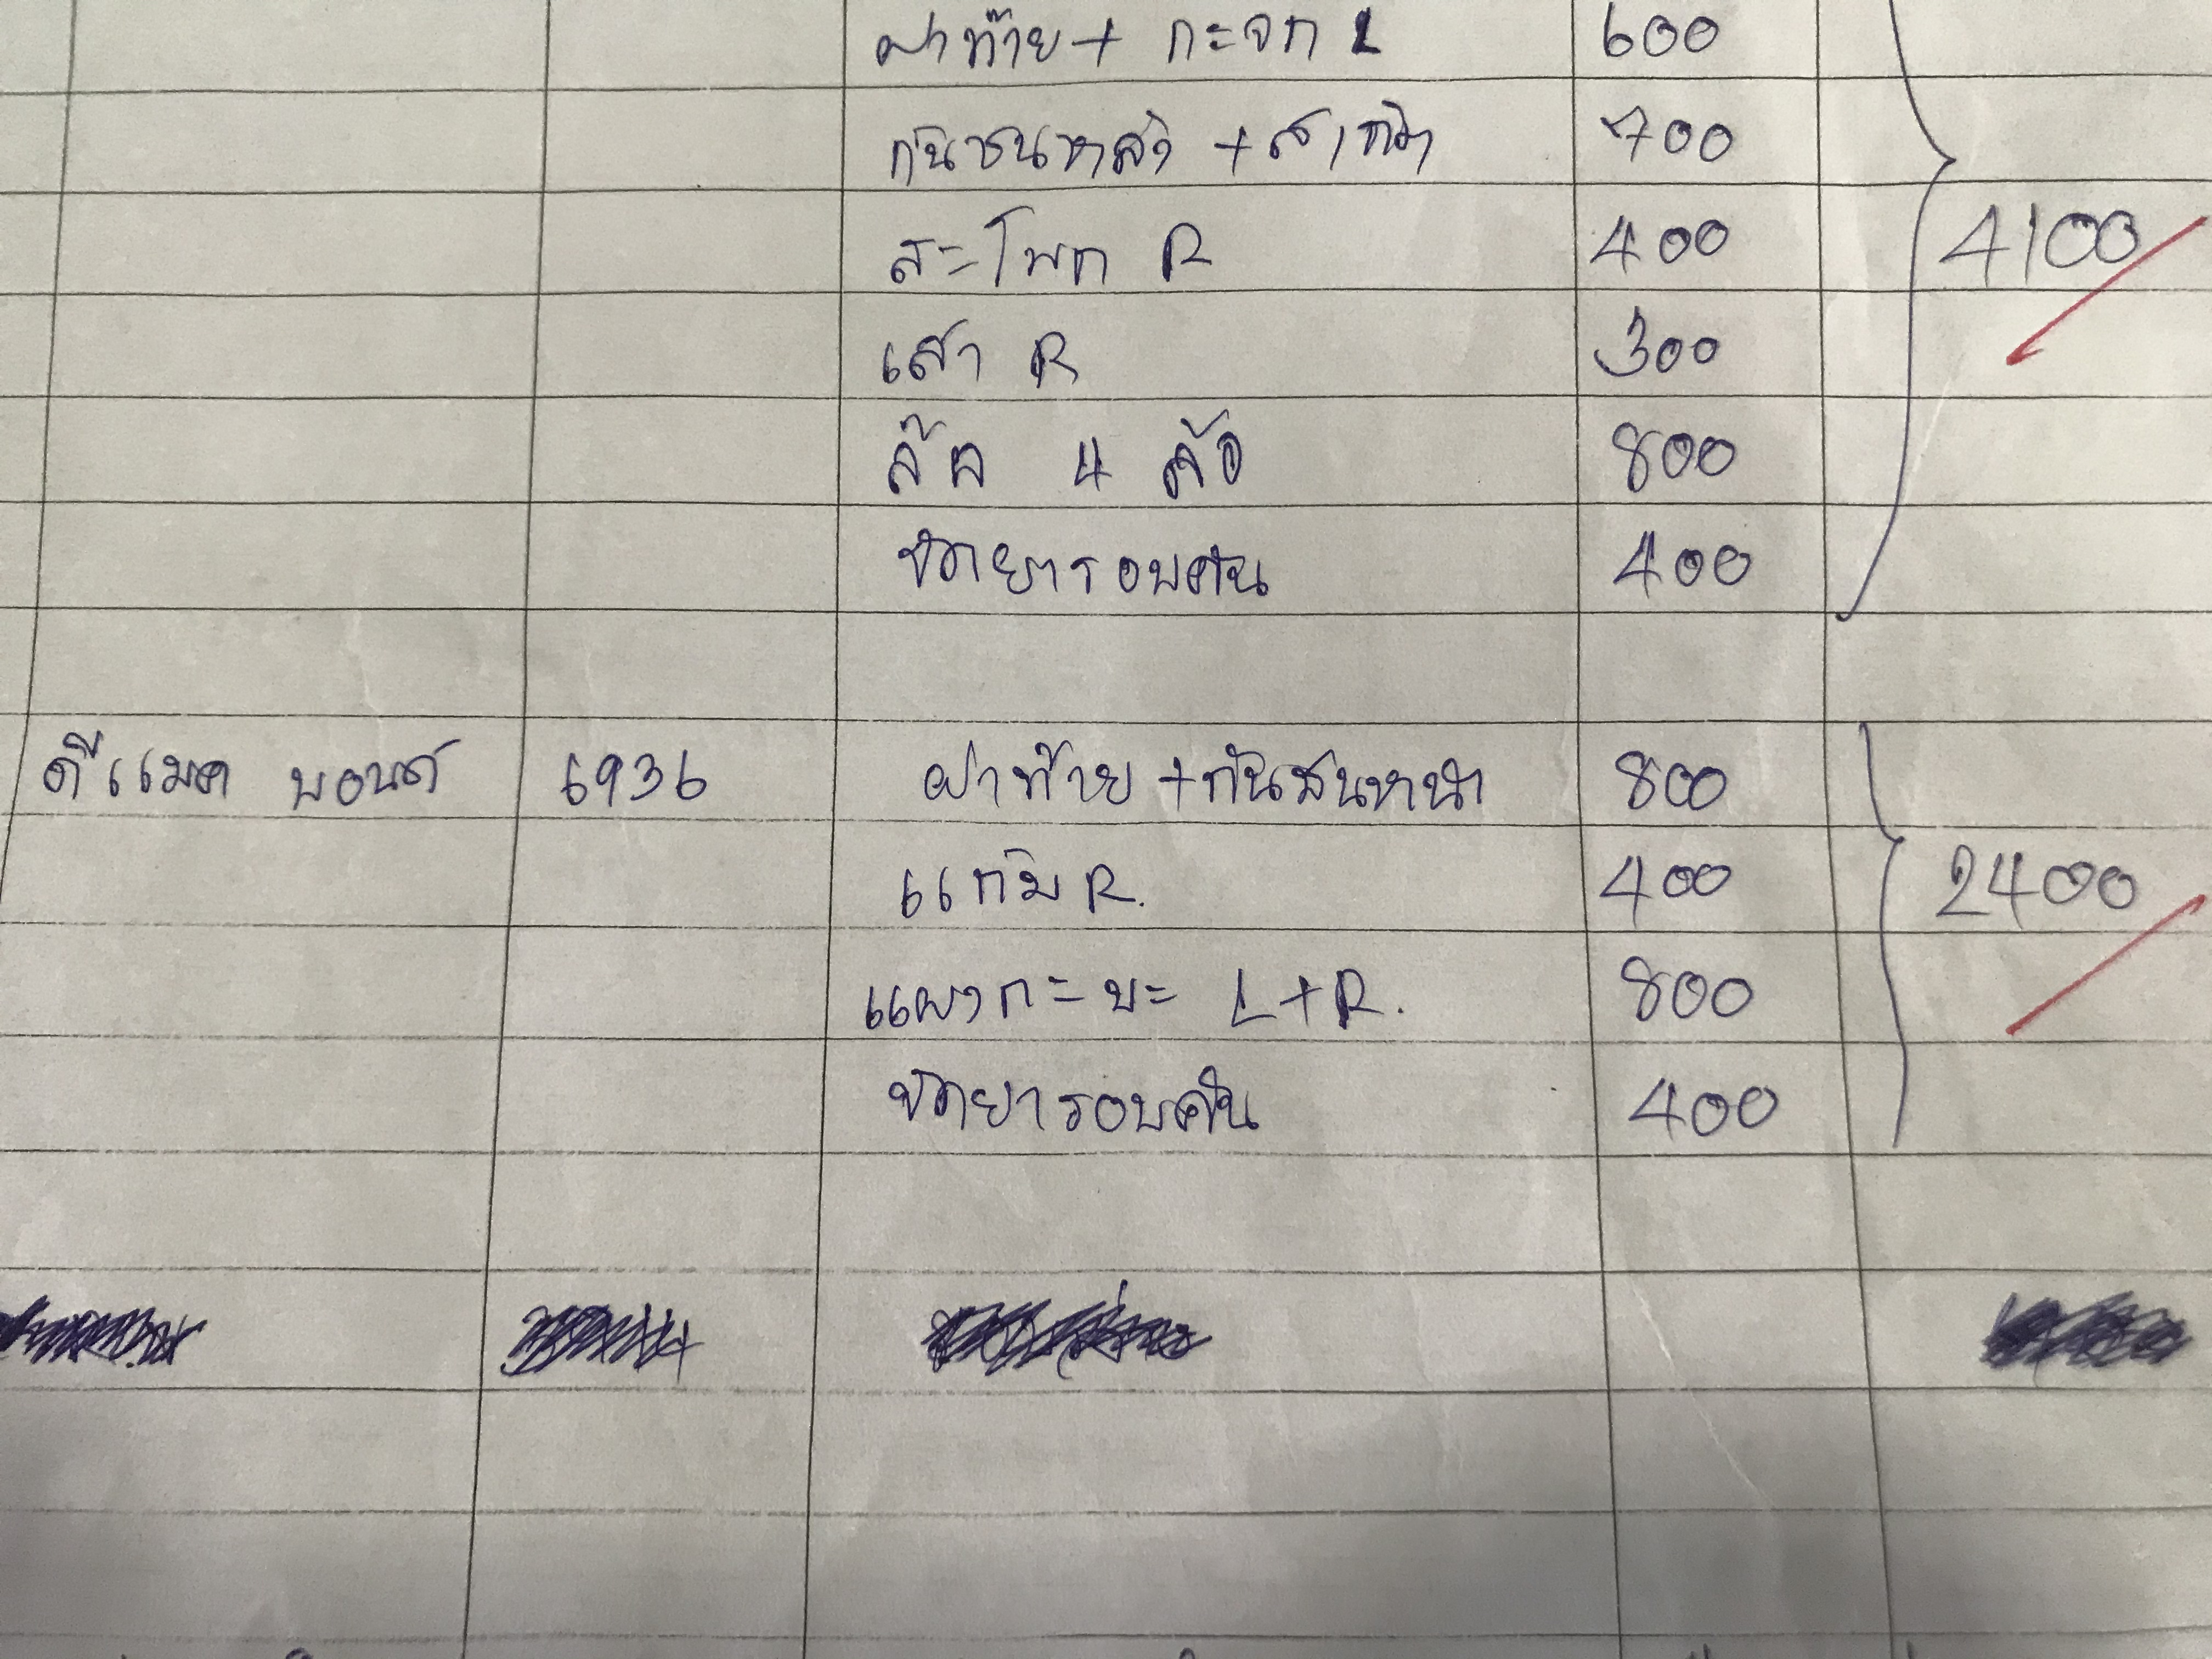 ฝาท้าย + กะจก L 600
กันชนหลัง + ลาเก้า 700
สะโพก R 400 4100
เสา R 300
ล้อ 4 ล้อ 800
ขัดยารอบคัน 400
ดีแมค บอนด์ 6936 ฝาท้าย + กันชนหน้า 800
แก้ม R. 400 2400
แผงกะบะ L+R. 800
ขัดยารอบคัน 400